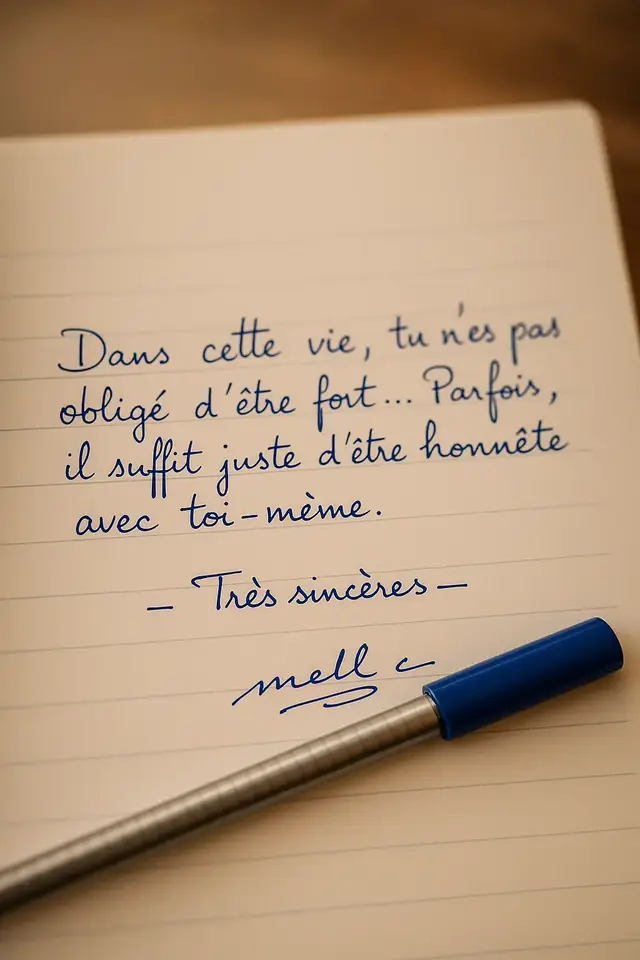 Dans cette vie, tu n'es pas
obligé d'être fort... Parfois,
il suffit juste d'être honnête
avec toi-mème.
— Très sincères —
mell c